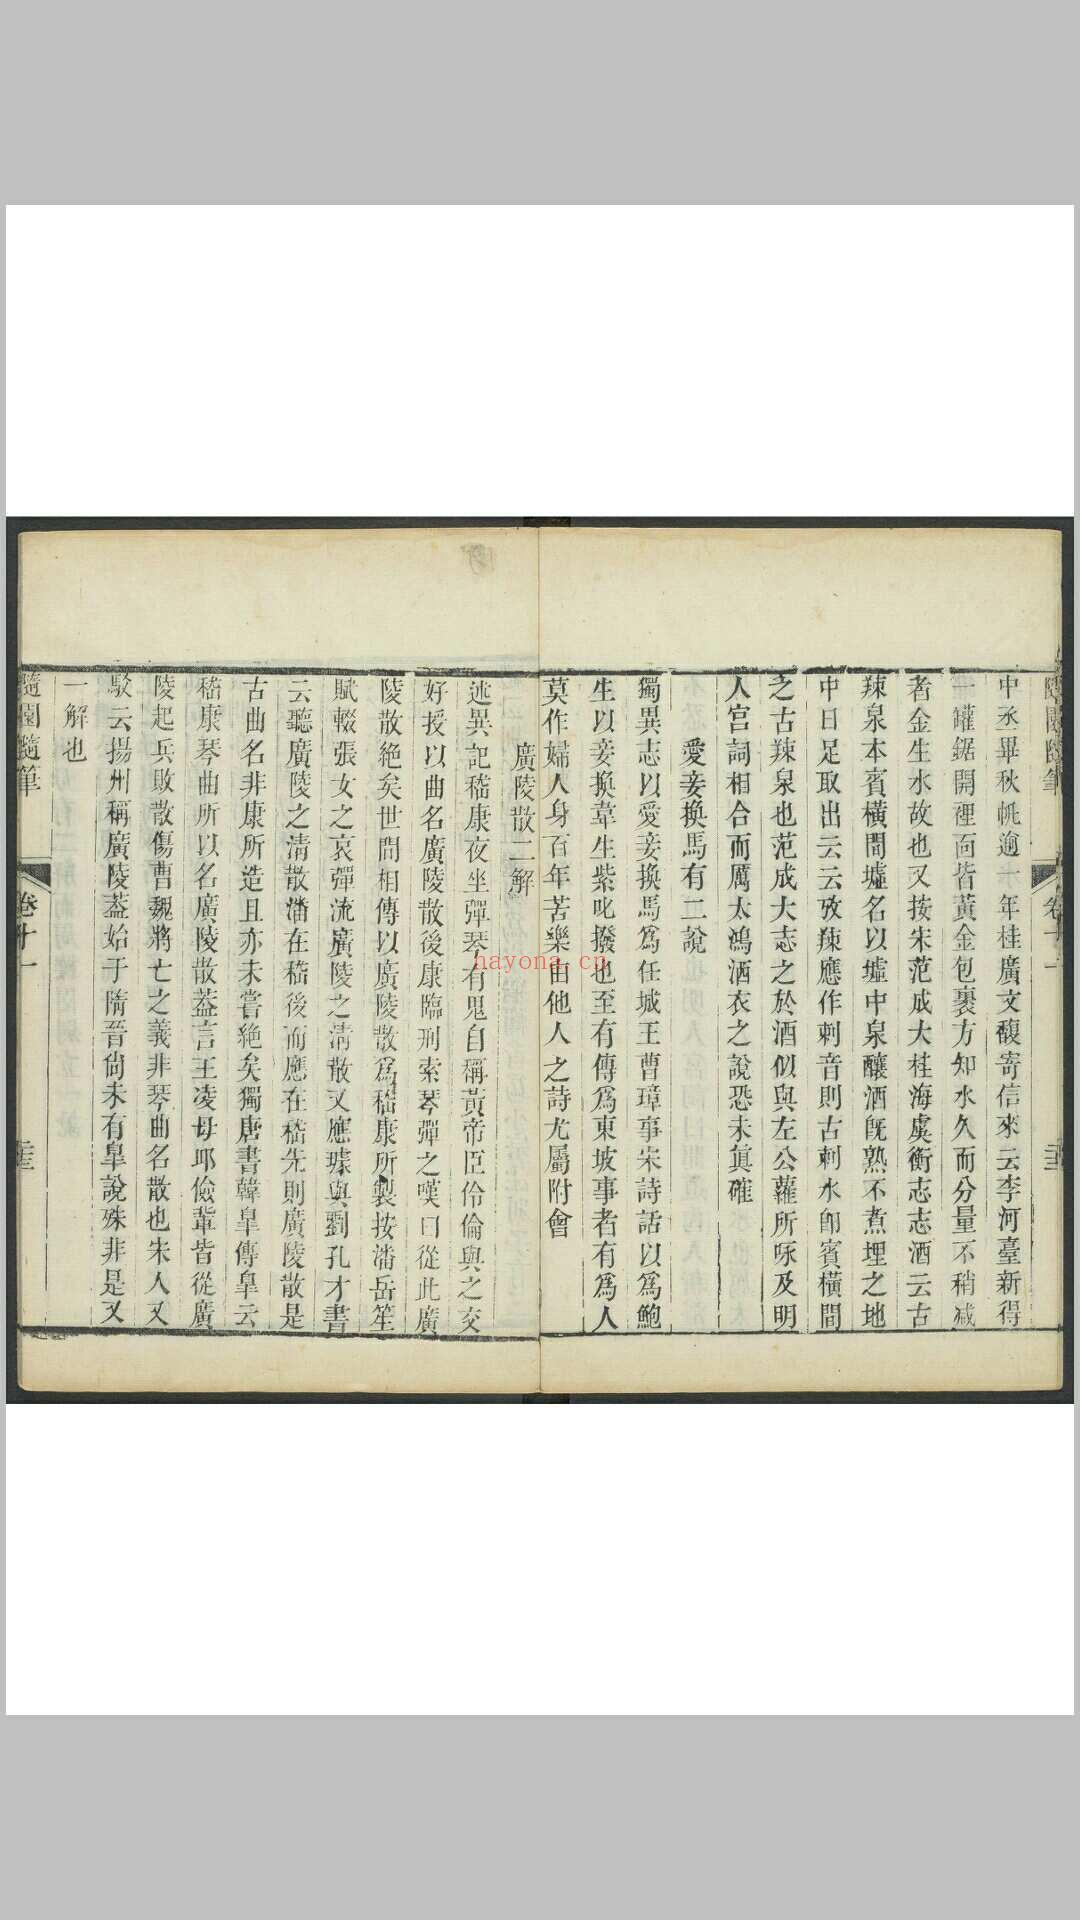 隨園隨筆
卷十一
中丞畢秋帆逾一年桂廣文馥寄信來云李河臺新得
一罐鋸開裡面皆黃金包裹方知水久而分量不稍減
者金生水故也又按宋范成大桂海虞衡志志酒云古
辣泉本賓橫間墟名以墟中泉釀酒旣熟不煮埋之地
中日足取出云云攷辣應作刺音則古刺水卽賓橫間
之古辣泉也范成大志之於酒似與左公蘿所咏及明
人宮詞相合而厲太鴻洒衣之說恐未眞確
愛妾換馬有二說
獨異志以愛妾換馬爲任城王曹璋事宋詩話以爲鮑
生以妾換韋生紫叱撥也至有傳爲東坡事者有爲人
莫作婦人身百年苦樂由他人之詩尤屬附會
廣陵散二解
述異記嵇康夜坐彈琴有鬼自稱黃帝臣伶倫與之交
好授以曲名廣陵散後康臨刑索琴彈之嘆曰從此廣
陵散絶矣世間相傳以廣陵散爲嵇康所製按潘岳笙
賦輟張女之哀彈流廣陵之清散又應璩與劉孔才書
云聽廣陵之清散潘在嵇後而應在嵇先則廣陵散是
古曲名非康所造且亦未嘗絶矣獨唐書韓皐傳皐云
嵇康琴曲所以名廣陵散葢言王凌毋邱儉輩皆從廣
陵起兵敗散傷曹魏將亡之義非琴曲名散也朱人又
駁云揚州稱廣陵葢始于隋晉尙未有皐說殊非是又
一解也
隨園隨筆
卷十一
hayona.cn